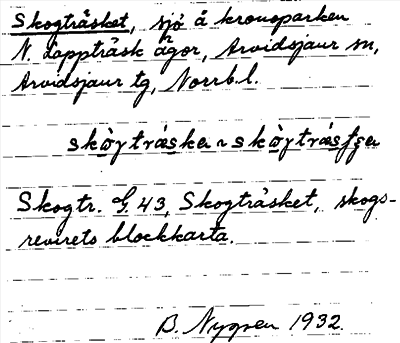 Skogträsket, sjö å kronoparken
N. Lappträsk ägor, Arvidsjaur sn,
Arvidsjaur tg, Norrb. l.
Skogtr. G. 43, Skogträsket, skogs-
revirets blockkarta.
B. Nygren 1932.